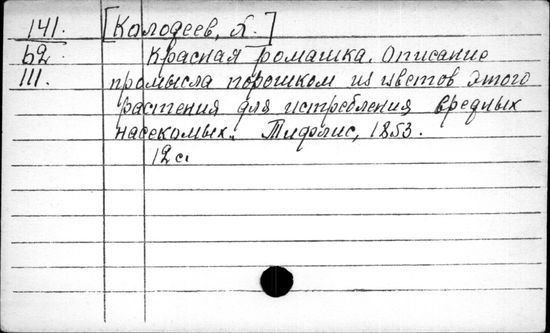 141. [Колодеев, А.]
62. Красная ромашка. Описание
III. промысла порошком из цветов этого
растения для истребления вредных
насекомых. Тифлис, 1853.
12 с.